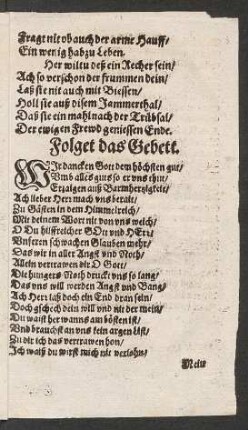 Fragt nit ob auch der arme Hauff/
Ein wenig hab zu Leben.
Her wiltu deß ein Recher sein/
Ach so verschon der frummen dein/
Laß sie nit auch mit Biessen/
Holl sie auß disem Jammerthal/
Daß sie ein mahl nach der Trübsal/
Der ewigen Frewd geniessen Ende.
Folget das Gebett.
WIr dancken Gott dem höchsten gut/
Vmb alles guts so er vns thut/
Erzaigen auß Barmhertzigkeit/
Ach lieber Herr mach vns berait/
Zu Gästen in dem Himmelreich/
Mit deinem Wort nit von vns welch/
O Du hilffreicher GOtt vnd HErr/
Vnseren schwachen Glauben mehr/
Das wir in aller Angst vnd Noth/
Allein vertrawen dir O Gott/
Die hungers Noth druckt vns so lang/
Das vns will werden Angst vnd Bang/
Ach Herr laß doch ein End dran sein/
Doch gschech dein will vnd nit der mein/
Du waist her wanns am bösten ist/
Vnd brauchst an vns kein argen List/
Zu dir ich das vertrawen hon/
Ich waiß du wirst mich nit verlohn/
Mein